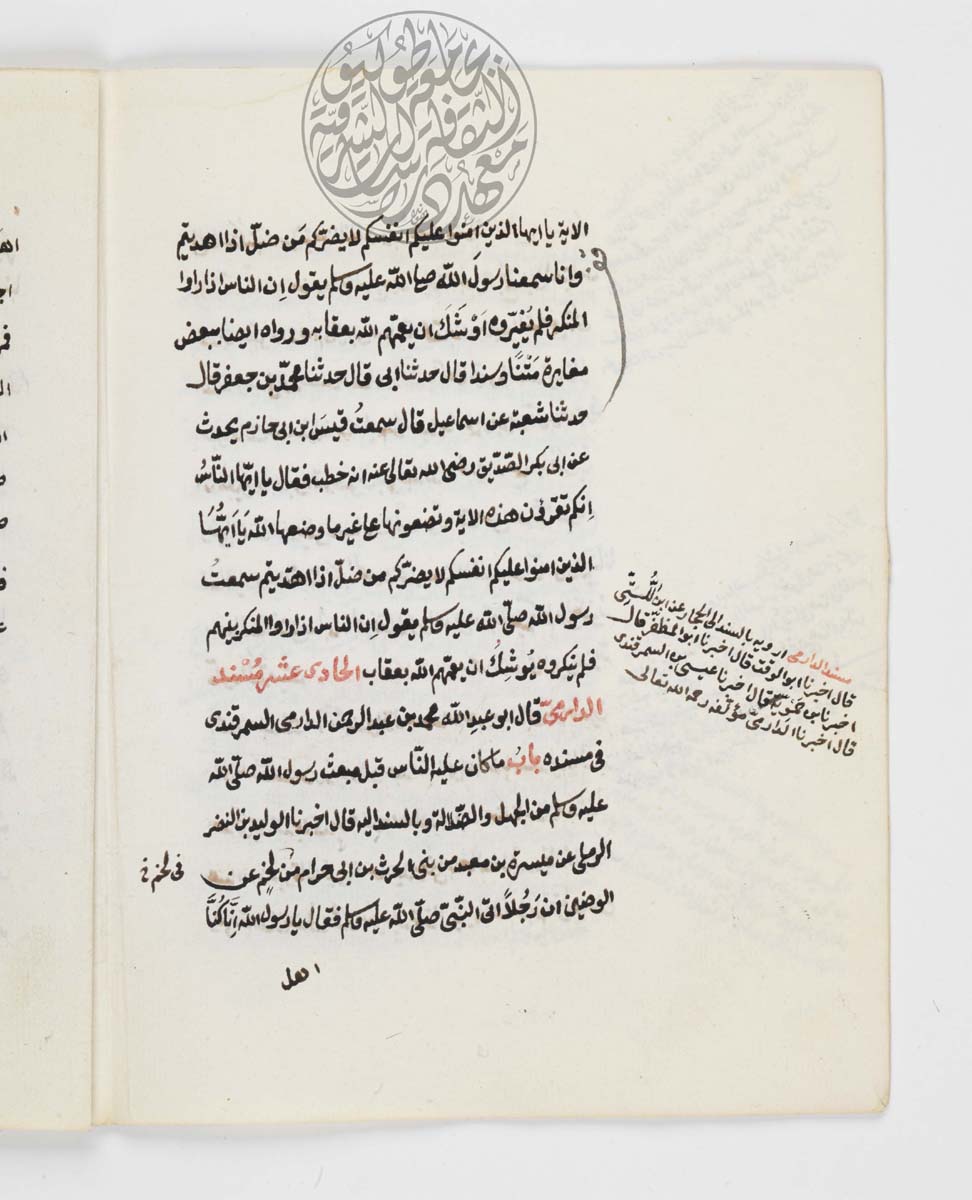 الاية يا ايها الذين امنوا عليكم انفسكم لا يضركم من ضل اذا اهديتم
وانا سمعنا رسول الله صلى الله عليه وسلم يقول ان الناس اذا راوا
المنكر فلم يُغيّروه اَوْشَكَ ان يعمّهم الله بعقابه ورواه ايضا ببعض
مغايرة مَتْنًا وسندا قال حدثنا ابى قال حدثنا محمّد بن جعفر قال
حدثنا شعبة عن اسماعيل قال سمعتُ قيسَ ابن ابى حازم يحدث
عن ابى بكر الصّديق رضى الله تعالى عنه انه خطب فقال يا ايّها النّاسُ
اِنكم تقرؤن هذه الاية وتضعونها على غير ما وضعها الله يَا اَيُّهَا
الذين امنوا عليكم انفسكم لا يضرّكم من ضلّ اذا اهتديتم سمعتُ
رسول الله صلّى الله عليه وسلم يقول اِن الناس اذا راوا المنكر بينهم
فلم ينكروه يُوشِكُ ان يعمّهم الله بعقاب الحادى عشر مُسْند
الدارمىّ قال ابو عبد الله محمد بن عبد الرحمن الدارمى السمرقندى
فى مسنده بابُ ما كان عليه النّاس قبل مبعث رسول الله صلّى الله
عليه وسلم من الجهل والضّلالة وبالسند اليه قال اخبرنا الوليد بن النضر
الرملى عن ميسرة بن معبد من بنى الحرث بن ابى حرام من لخم عن
الوضين ان رَجُلاً اتى النّبىّ صلّى الله عليه وسلم فقال يا رسول الله اِنَّا كُنَّا
اهل
مسند الدارمى ارويه بالسند الى الحجار عن ابن اللُّتّى
قال اخبرنا ابو الوقت قال اخبرنا ابو المظفر قال
اخبرنا ابن حَمّويَه قال اخبرنا عيسى السمرقندى
قال اخبرنا الدارمىّ مؤلّفه رحمه الله تعالى
فى لخم
جامعة طوكيو
معهد دراسات الثقافة الشرقية